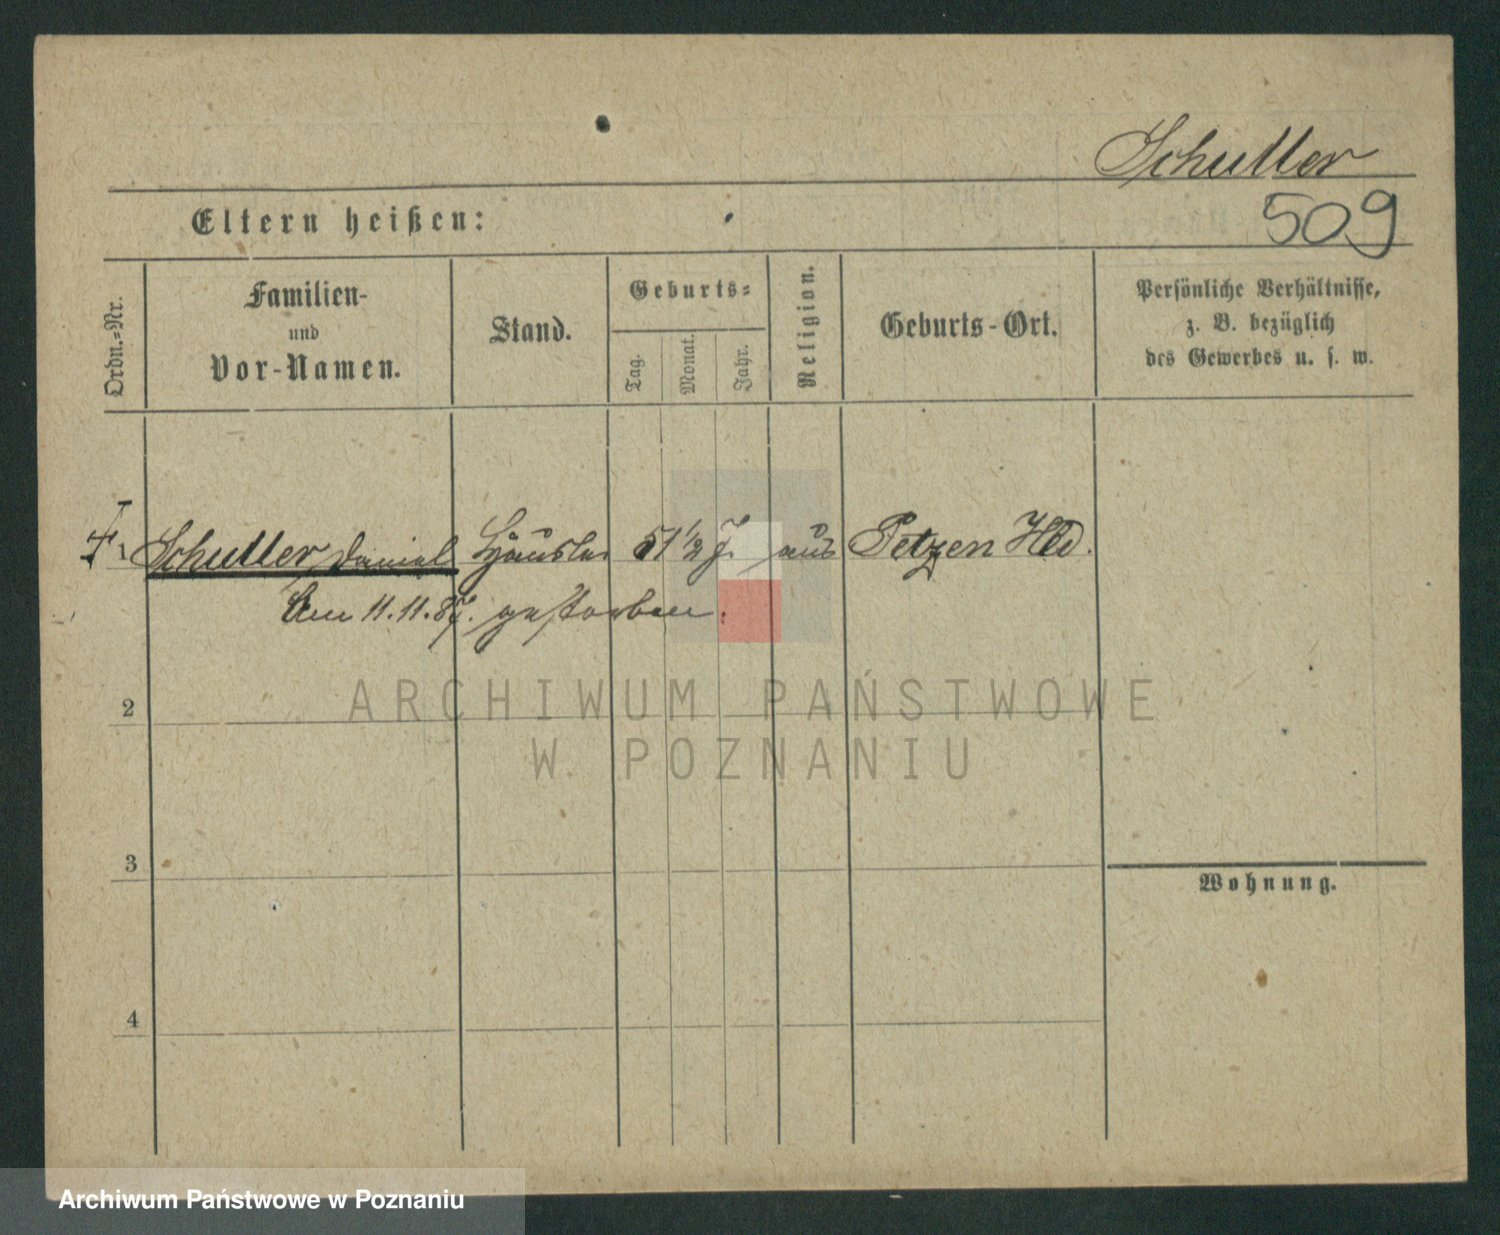 Schuller
509
Eltern heißen:
Ordn.-Nr.
Familien-
und
Vor-Namen.
Stand.
Geburts-
Tag.
Monat.
Jahr.
Religion.
Geburts-Ort.
Persönliche Verhältnisse,
z. B. bezüglich
des Gewerbes u. s. w.
1 Schuller Daniel Häusler 51 1/2 J. aus Petzen Hld.
Am 11.11.87. gestorben.
ARCHIWUM PAŃSTWOWE
W POZNANIU
2
3
Wohnung.
4
Archiwum Państwowe w Poznaniu